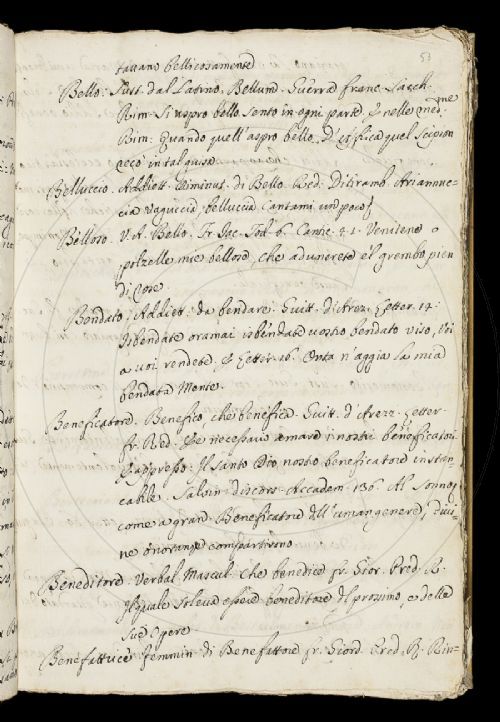 53
tavano bellicosamente
Bello. Sust. dal Latino, Bellum. Guerra franc. Sacch.
Rim. Si aspro bello sento in ogni parte. E nelle med.me
Rim. Quando quell'aspro bello. D'Affrica quel Scipion
recò in tal guisa
Belluccio. Addiett. Diminut. di Bello. Red. Ditiramb. Ariannuc-
cia vaguccia, belluccia Cantami un poco
Belloro. V. A. Bello. Fr. Jac. Tod. 6. Cantic. 41. Veniteno o
polzelle mie bellore, che adunerete il grembo pien
di Core
Bendato. Addiett. da bendare. Guitt. d'Arez. Letter. 14.
Isbendate oramai isbendate vostro bendato viso, Voi
a voi rendete. E Letter. 16. Onta n'aggia la mia
bendata Monte.
Beneficatore. Benefico, che benefica. Guitt. d'Arezz. Letter
Fr. Red. Le necessario amare i nostri beneficatori
E appresso: Il Santo Dio nostro beneficatore instan-
cabile. Salvin. discors. Accadem. 136. Al Sonno,
come a gran Beneficatore dell'umangenere, divi-
ne onoranze compartirono
Beneditore. Verbal. Mascul. Che benedice. Fr. Gior. Pred. R.
Il quale soleva essere beneditore del prossimo, e delle
sue Opere
Benefattrice. femmin. di Benefattore fr. Giord. Pred. R. Rin-